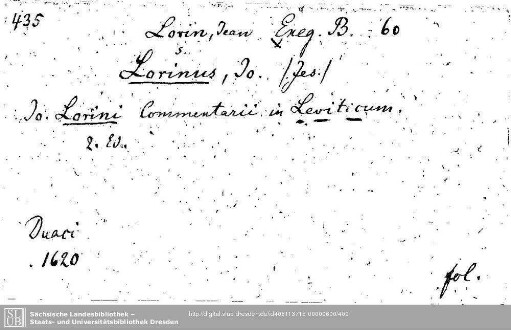 435
Lorin, Jean Exeg. B. 60
s.
Lorinus, Jo. /Jes./
Jo. Lorini Commentarii in Leviticum.
2. Ed.
Duaci
1620
fol.
Sächsische Landesbibliothek –
Staats- und Universitätsbibliothek Dresden